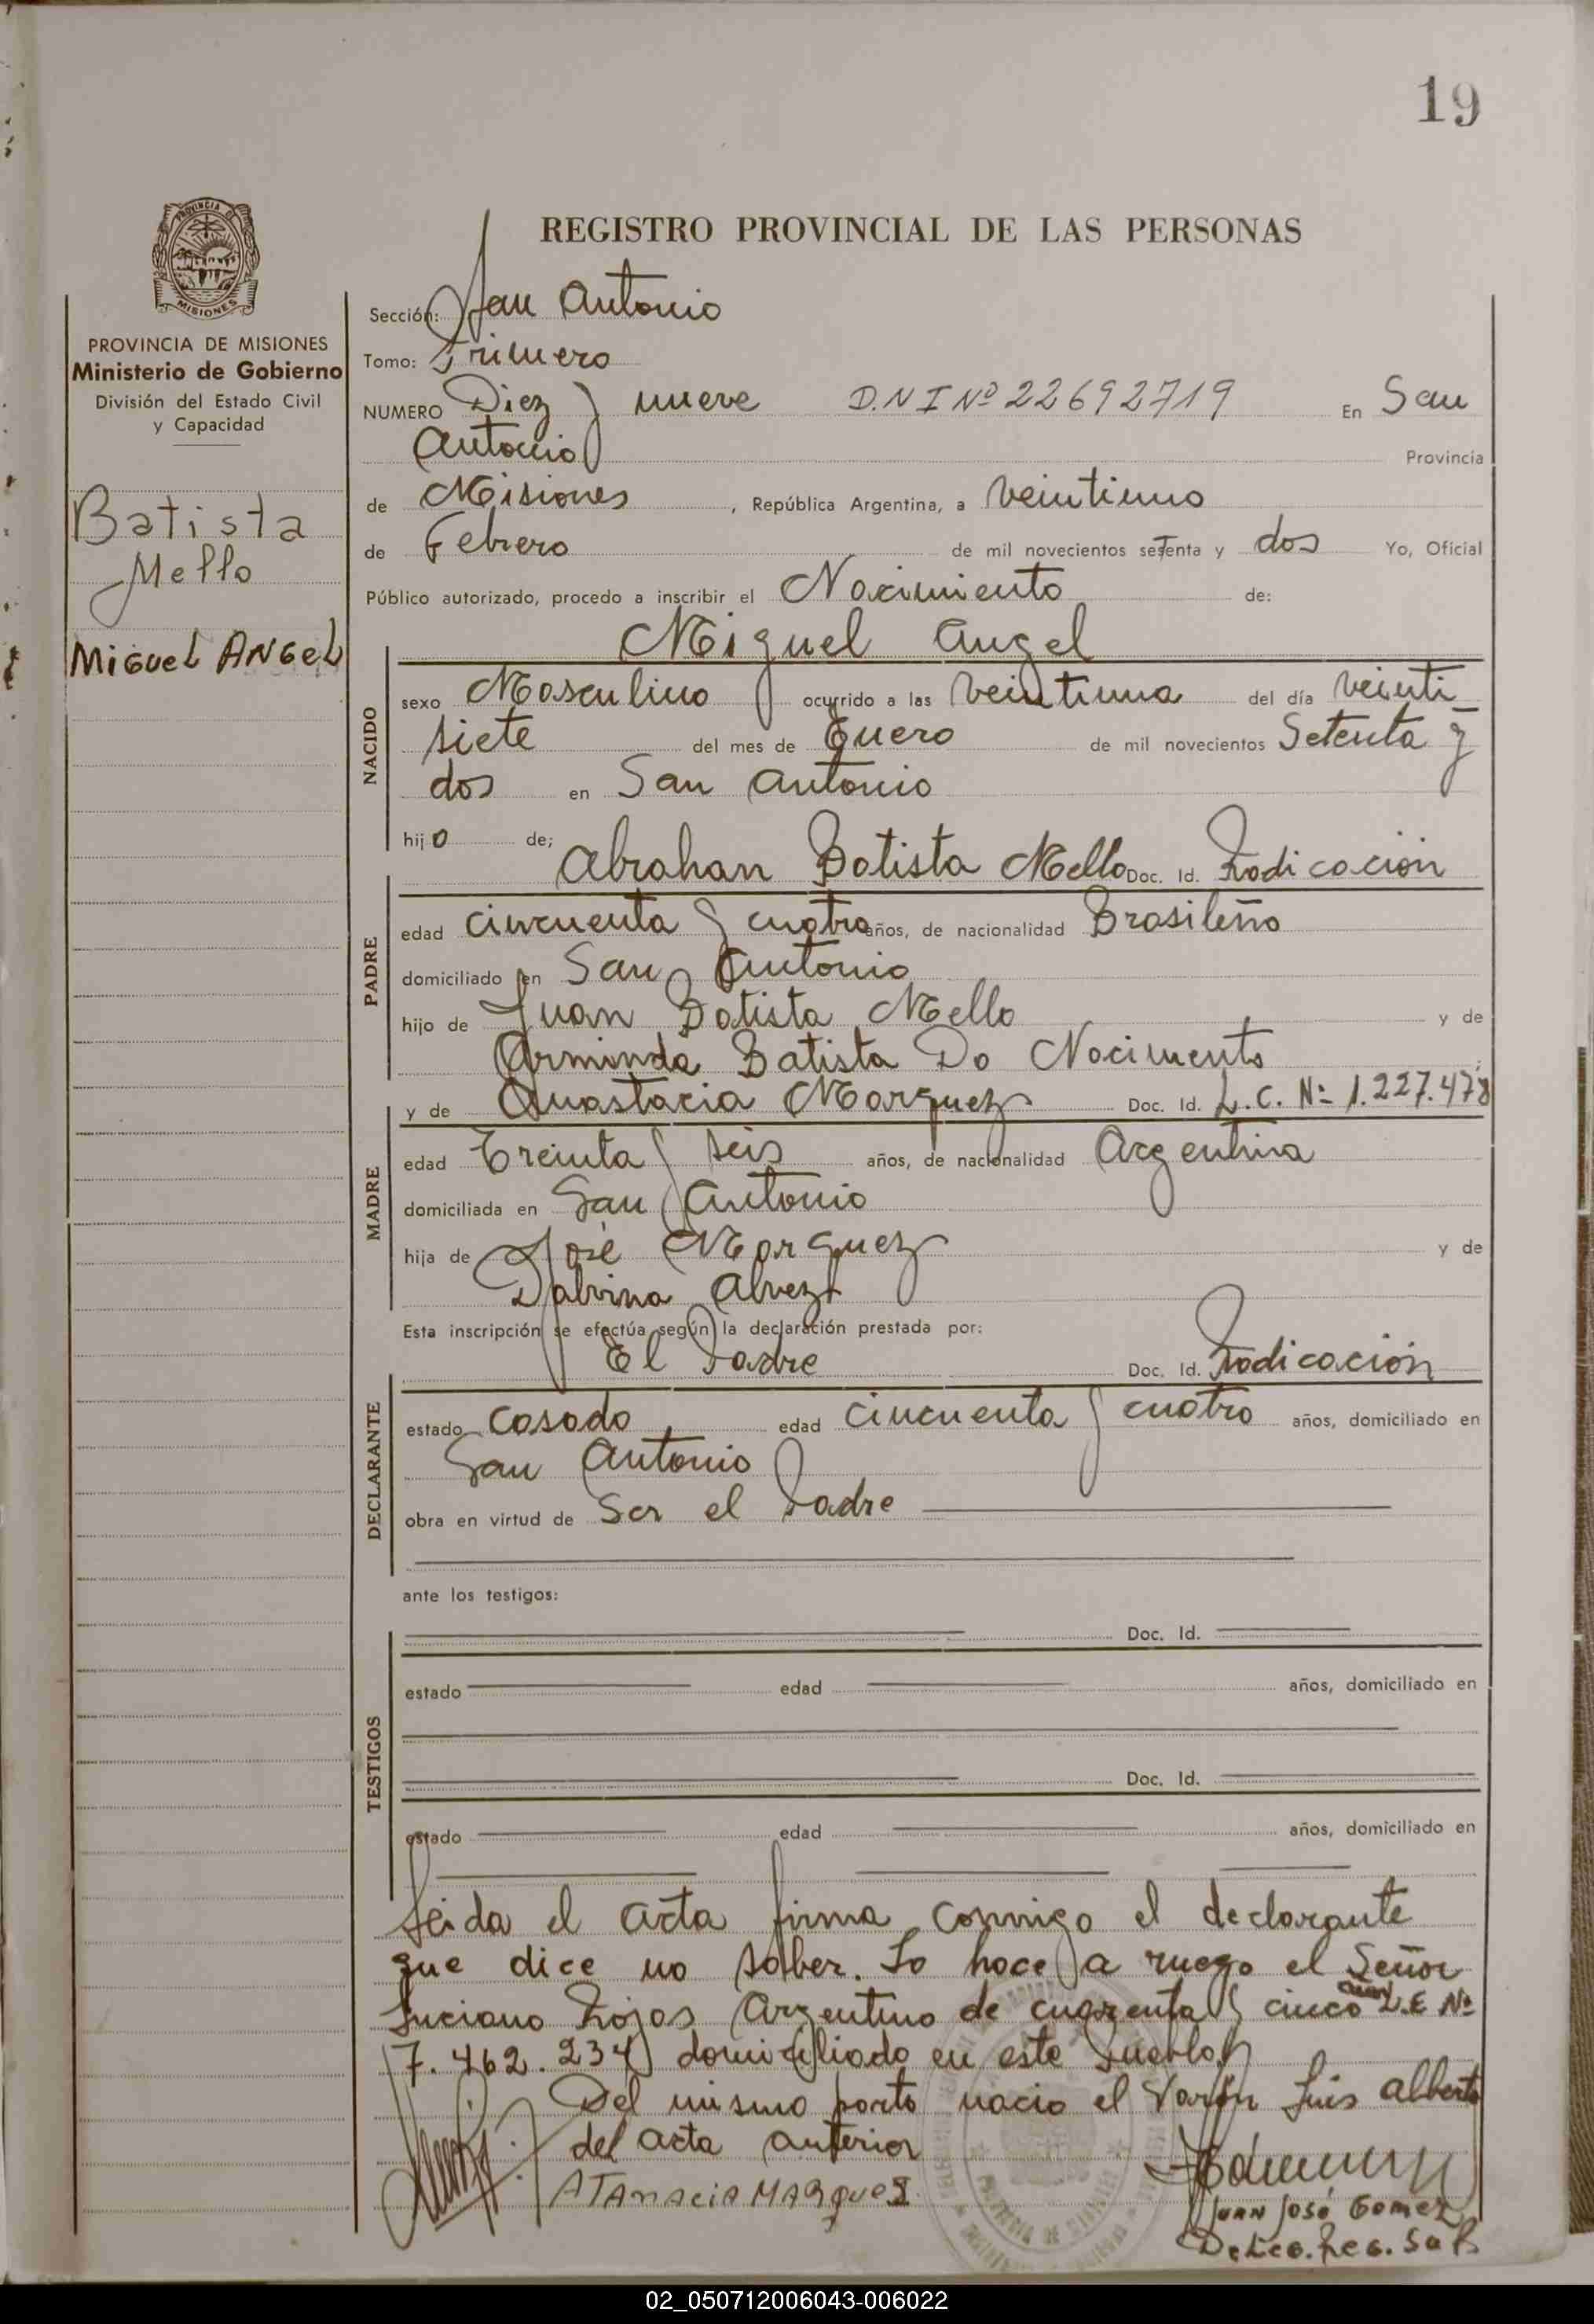 19
REGISTRO PROVINCIAL DE LAS PERSONAS
PROVINCIA DE MISIONES
Ministerio de Gobierno
División del Estado Civil
y Capacidad
Batista
Mello
Miguel ANGEL
Sección: San Antonio
Tomo: Primero
NUMERO Diez y nueve D.N I Nº 22692719 En San
Antonio Provincia
de Misiones, República Argentina, a veintiuno
de Febrero de mil novecientos setenta y dos Yo, Oficial
Público autorizado, procedo a inscribir el Nacimiento de:
Miguel Angel
NACIDO
sexo Masculino ocurrido a las veintiuna del día veinti
siete del mes de Enero de mil novecientos Setenta y
dos en San Antonio
hijo de;
Abrahan Batista Mello Doc. Id. Radicación
PADRE
edad cincuenta y cuatro años, de nacionalidad Brasileño
domiciliado en San Antonio
hijo de Juan Batista Mello y de
Arminda Batista Do Nocimento
y de Anastacia Marquez Doc. Id. L.C. Nº 1.227.478
MADRE
edad Treinta y seis años, de nacionalidad Argentina
domiciliada en San Antonio
hija de José Marquez y de
Dalvina Alvez
Esta inscripción se efectúa según la declaración prestada por:
El Padre Doc. Id. Radicación
DECLARANTE
estado Casado edad cincuenta y cuatro años, domiciliado en
San Antonio
obra en virtud de Ser el Padre
ante los testigos:
TESTIGOS
Doc. Id.
estado edad años, domiciliado en
Doc. Id.
estado edad años, domiciliado en
Leida el acta firma conmigo el declarante
que dice no saber. Lo hace a ruego el Señor
Luciano Rojas Argentino de cuarenta y cinco años L.E Nº
7.462.234 domiciliado en este Pueblo
Del mismo parto nacio el Varón Luis Alberto
del acta anterior
ATANACIA MARQUEZ
JUAN JOSÉ GOMEZ
02_050712006043-006022